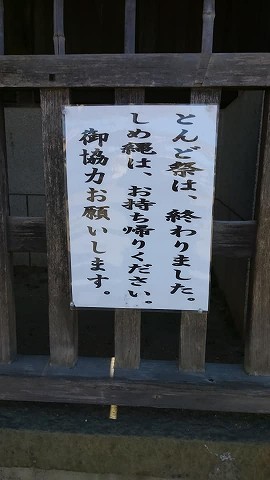 とんど祭は、終わりました。
しめ縄は、お持ち帰りください。
御協力お願いします。